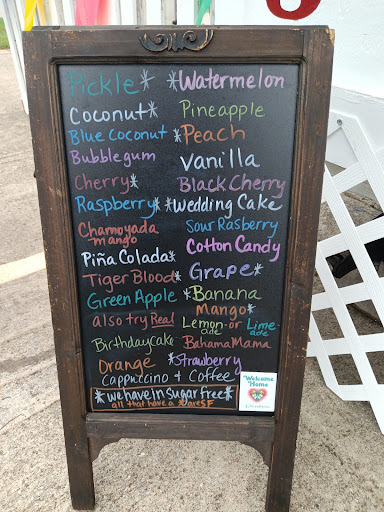 Pickle* *Watermelon
Coconut* Pineapple
Blue Coconut *Peach
Bubblegum Vanilla
Cherry* Black Cherry
Raspberry* *Wedding Cake
Chamoyada mango Sour Rasberry
Piña Colada* Cotton Candy
Tiger Blood* Grape*
Green Apple *Banana
Mango*
also try Real Lemon-ade or Lime-ade
Birthday Cake BahamaMama
Orange *Strawberry
Cappuccino + Coffee
*we have In Sugar free*
all that have a * are SF
Welcome Home